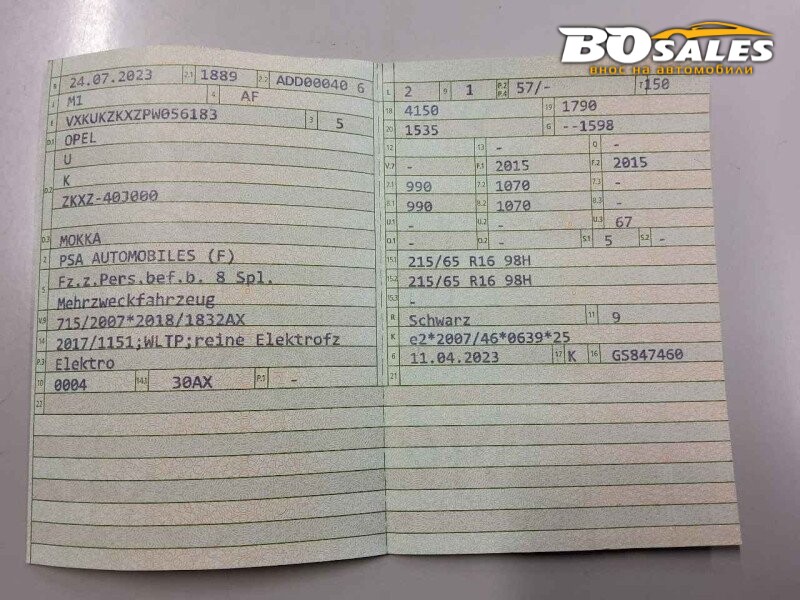 BOSALES
внос на автомобили
B 24.07.2023 2.1 1889 2.2 ADD00040 6
J M1 4 AF
E VXKUKZKXZPW056183 3 5
D.1 OPEL
U
D.2 K
ZKXZ-40J000
D.3 MOKKA
2 PSA AUTOMOBILES (F)
5 Fz.z.Pers.bef.b. 8 Spl.
Mehrzweckfahrzeug
V.9 715/2007*2018/1832AX
14 2017/1151;WLTP;reine Elektrofz
P.3 Elektro
10 0004 14.1 30AX P.1 -
22
L 2 9 1 P.2 P.4 57/- T 150
18 4150 19 1790
20 1535 G --1598
12 - 13 - Q -
V.7 - F.1 2015 F.2 2015
7.1 990 7.2 1070 7.3 -
8.1 990 8.2 1070 8.3 -
U.1 - U.2 - U.3 67
O.1 - O.2 - S.1 5 S.2 -
15.1 215/65 R16 98H
15.2 215/65 R16 98H
15.3 -
R Schwarz 11 9
K e2*2007/46*0639*25
6 11.04.2023 17 K 16 GS847460
21